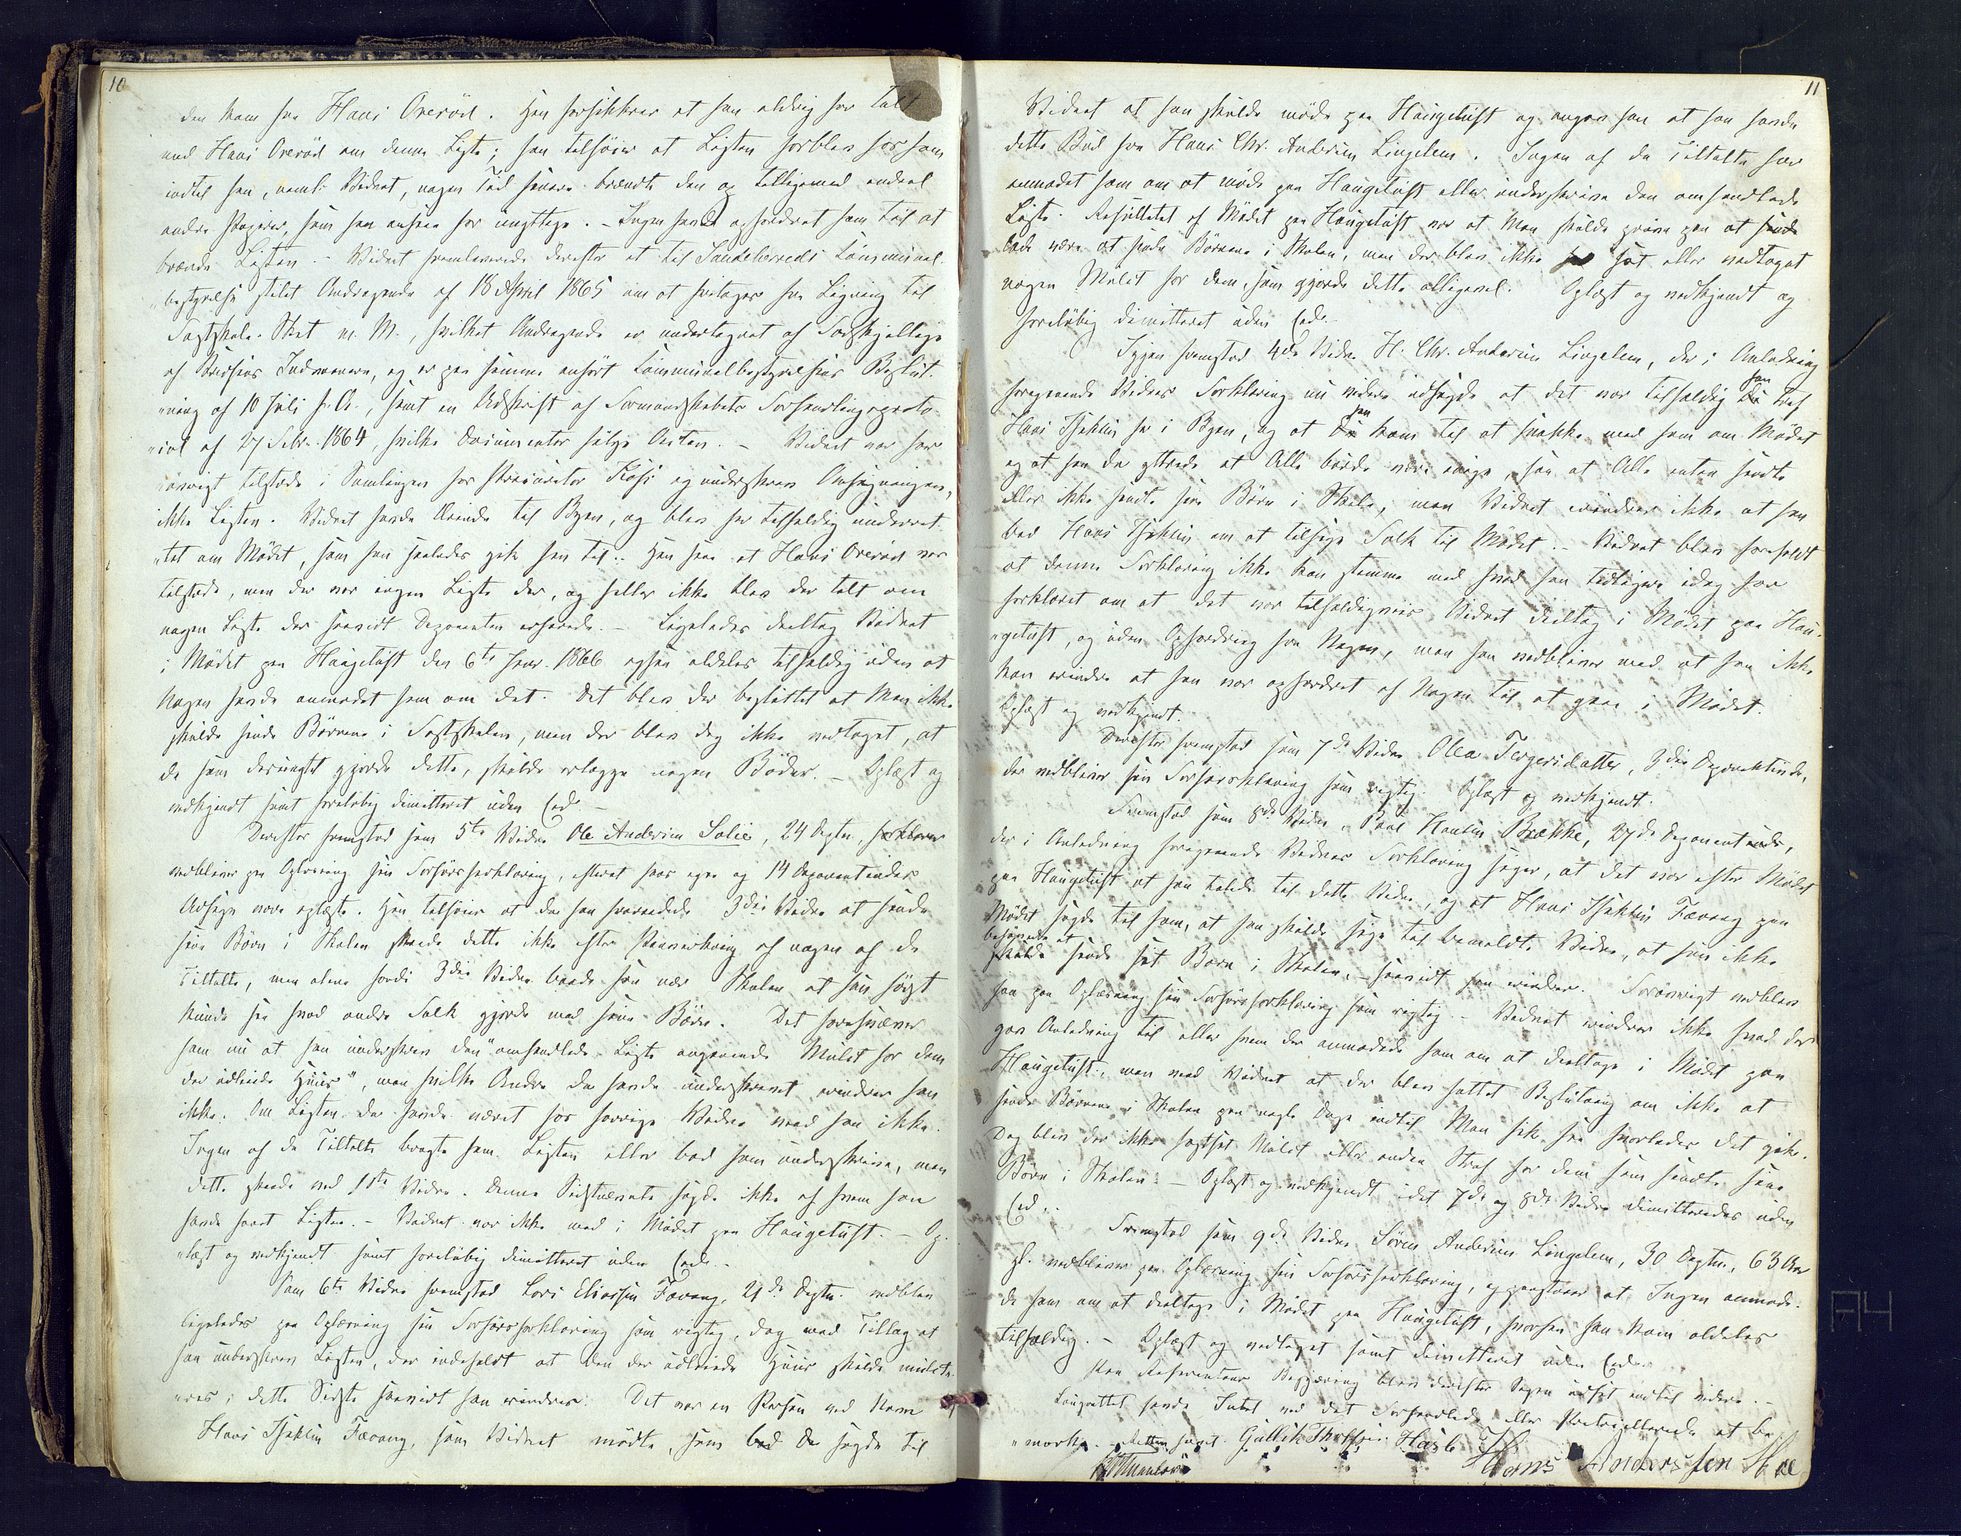 10
den kom fra Hans Orerød. Han forsikkrer at han aldrig har talt
med Hans Orerød om denne Liste; han tilføier at Listen forblev hos ham
indtil han, nemlig Vidnet, nogen Tid senere brændte den og tilligemed endeel
andre Papirer, som han ansaae for unyttige. – Ingen havde opfordret ham til at
brænde Listen. – Vidnet fremleverede derefter et til Sandeherreds Communal-
bestyrelse stilet Andragende af 18 April 1865 om at fritages for Ligning til
Fastskole-Skat m. M., hvilket Andragende er undertegnet af Forskjellige
af Indvaanere, og er paa samme anført Communalbestyrelsens Beslut-
„ning af 10 Juli s. A., samt en Udskrift af Formandskabets Forhandlingsproto-
„col af 27 Febr. 1864, hvilke Documenter følge Acten. – Vidnet var for-
„øvrigt tilstede i Samlingen hos Procurator og underskrev Ansøgningen,
ikke Listen. Vidnet havde Ærinde til Byen, og blev her tilfældig underret-
„tet om Mødet, som han saaledes gik hen til. Han saae at Hans Orerød var
tilstede, men der var ingen Liste der, og heller ikke blev der talt om
nogen Liste der saavidt Deponenten erfarede. – Ligeledes deeltog Vidnet
i Mødet paa Haugetuft den 6te Febr. 1866 ogsaa aldeles tilfældig uden at
Nogen havde anmodet ham om det. Det blev der besluttet at Man ikke
skulde sende Børnene i Fastskolen, men der blev dog ikke vedtaget, at
de som desuagtet gjorde dette, skulde erlægge nogen Bøder. – Oplæst og
vedkjendt samt foreløbig dimitteret uden Eed. –
Derefter fremstod som 5te Vidne Ole Andersen Solie, 24 Deptn, forklarer
vedbliver paa Oplæsning sin Forhørsforklaring, efterat hans egen og 14 Deponentindes
Udsagn vare oplæste. Han tilføier at da han fraraadede 3die Vidne at sende
sine Børn i Skolen skeede dette ikke efter Paavirkning af nogen af de
Tiltalte, men alene fordi 3die Vidne boede saa nær Skolen at hun først
kunde see hvad andre Folk gjorde med sine Børn. Det forekommer
ham nu at han underskrev den „omhandlede Liste angaaende Mulct for dem
der udleiede Huus“, men hvilke Andre der havde underskrevet erindrer han
ikke. Om Listen da havde været hos forrige Vidne veed han ikke.
Ingen af de Tiltalte bragte ham Listen eller bad ham underskrive, men
dette skeede ved 1ste Vidne. Denne Sidstnævnte sagde ikke af hvem han
havde faaet Listen. – Vidnet var ikke med i Mødet paa Haugetuft. – Op-
„læst og vedkjendt samt foreløbig dimitteret uden Eed. –
Som 6te Vidne fremstod Lars Eliassen Færang, 21de Deptn. vedblev
ligeledes paa Oplæsning sin Forhørsforklaring som rigtig, dog med Tillæg at
han underskrev Listen, der indeholdt at den der udleiede Huus skulde mulcte-
„res, i dette Sidste saavidt han erindrer. Det var en Person ved Navn
Hans Færang, som Vidnet mødte, som bad da sagde til
11
Vidnet at han skulde møde paa Haugetuft og angav han at han havde
dette Bud fra Hans Chr. Andersen Lingelem. Ingen af de Tiltalte har
anmodet ham om at møde paa Haugetuft eller underskrive den omhandlede
Liste. Resultatet af Mødet paa Haugetuft var at Man skulde prøve paa at
lade være at sende Børnene i Skolen, men der blev ikke sat eller vedtaget
nogen Mulct for dem, som gjorde dette alligevel. Oplæst og vedkjendt og
foreløbig dimitteret uden Eed. –
Igjen fremstod 4de Vidne H. Chr. Andersen Lingelem, der i Anledning
foregaaende Vidnes Forklaring nu videre udsagde at det var tilfældig han traf
Hans her i Byen, og at han kom til at snakke med ham om Mødet
og at han da yttrede at Alle burde være enige, saa at Alle enten sendte
eller ikke sendte sine Børn i Skole, men Vidnet erindrer ikke at han
bad Hans om at tilsige Folk til Mødet. – Vidnet blev foreholdt
at denne Forklaring ikke kan stemme med hvad han tidligere idag har
forklaret om at det var tilfældigviis Vidnet deeltog i Mødet paa Hau-
„getuft, og uden Opfordring fra Nogen, men han vedbliver med at han ikke
kan erindre at han var opfordret af Nogen til at gaae i Mødet.
Oplæst og vedkjendt.
Derefter fremstod som 7de Vidne Olea Torgersdatter, 3die Deponentinde,
der vedbliver sin Forhørsforklaring som rigtig. Oplæst og vedkjendt.
Fremstod som 8de Vidne, Paul Hansen Brække, 27de Deponent
der i Anledning foregaaende Vidnes Forklaring siger, at det var efter Mødet
paa Haugetuft at han talede til dette Vidne, og at Hans Færang paa
Mødet sagde til ham, at han skulde sige til bemeldte Vidne, at hun ikke
behøvede at
skulde sende sit Barn i Skolen, – saavidt han erindrer. Forøvrigt vedblev
han paa Oplæsning sin Forhørsforklaring som rigtig. – Vidnet erindrer ikke hvad der
gav Anledning til eller hvem der anmodede ham om at deeltage i Mødet paa
Haugetuft, men veed Vidnet at der blev fattet Beslutning om ikke at
sende Børnene i Skolen paa nogle Dage indtil Man fik see hvorledes det gik.
Dog blev der ikke fastsat Mulct eller anden Straf for dem som sendte sine
Børn i Skolen. – Oplæst og vedkjendt idet 7de og 8de Vidne dimitteredes uden
Eed. –
Fremstod som 9de Vidne Søren Andersen Lingelem, 30 Deptn, 63 Aar
gl. vedbliver paa Oplæsning sin Forhørsforklaring, og paastaaer at Ingen anmode-
de ham om at deeltage i Mødet paa Haugetuft, hvorhen han kom aldeles
tilfældig. – Oplæst og vedtaget samt dimitteret uden Eed.
Paa Referentens Begjæring blev derefter Sagen udsat indtil videre. –
Laugrettet havde Intet ved det Forhandlede eller Protocollerede at be-
„mærke. Retten hævet. Gullik Hasle Hans Anderssen